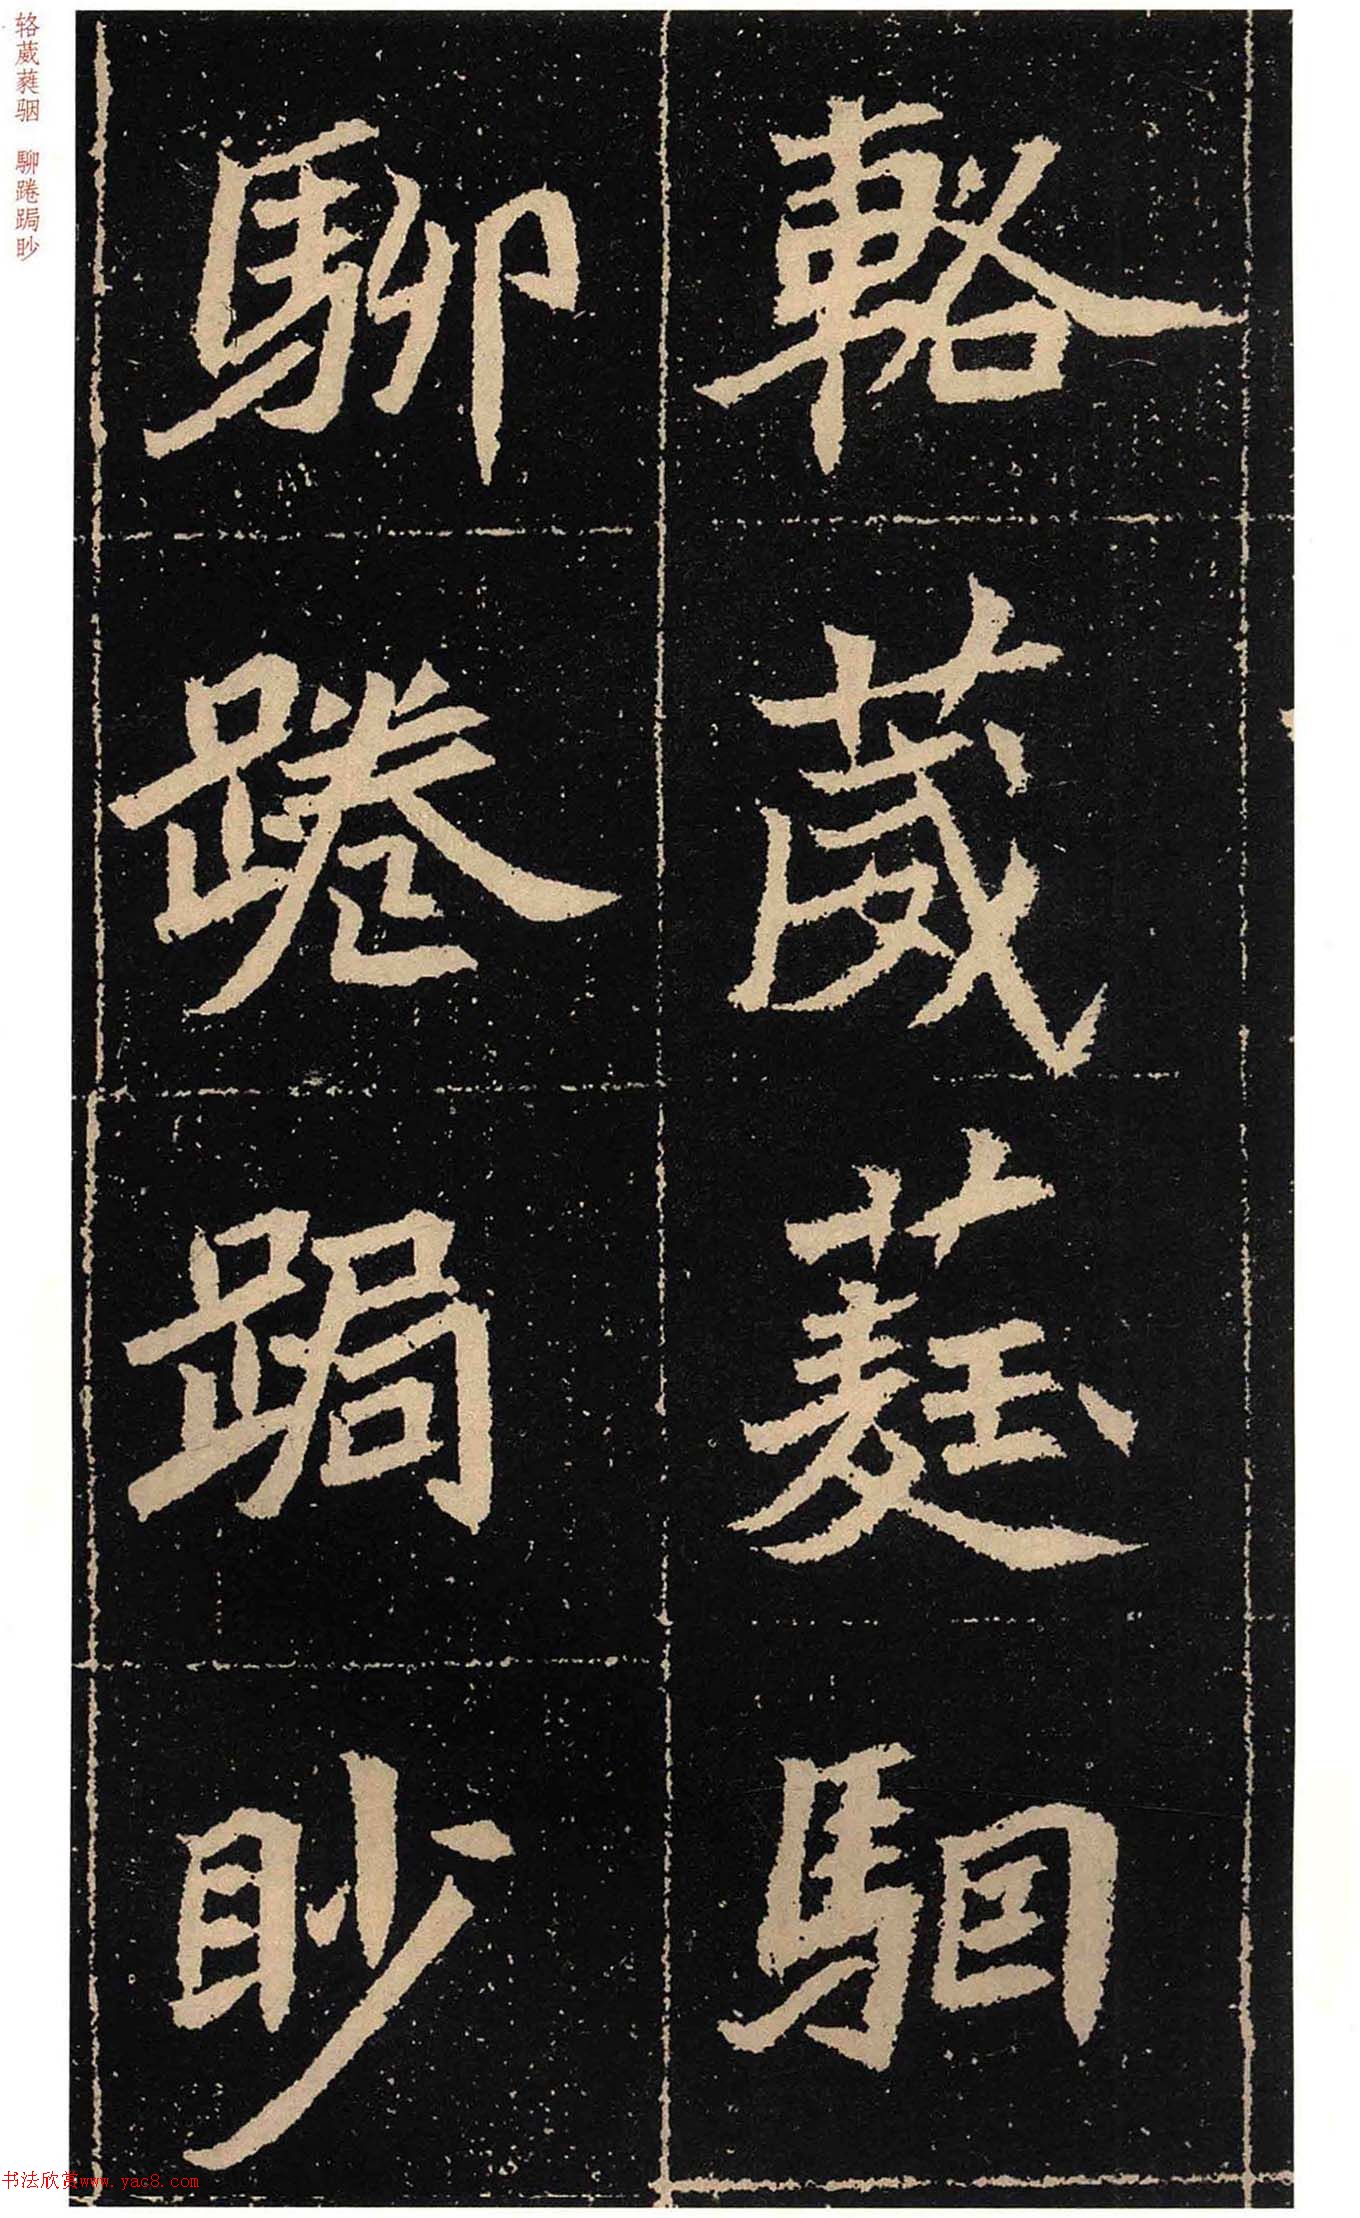 輅葳蕤駰
駠踡跼眇
辂葳蕤骃 駠踡跼眇
书法欣赏www.yac8.com